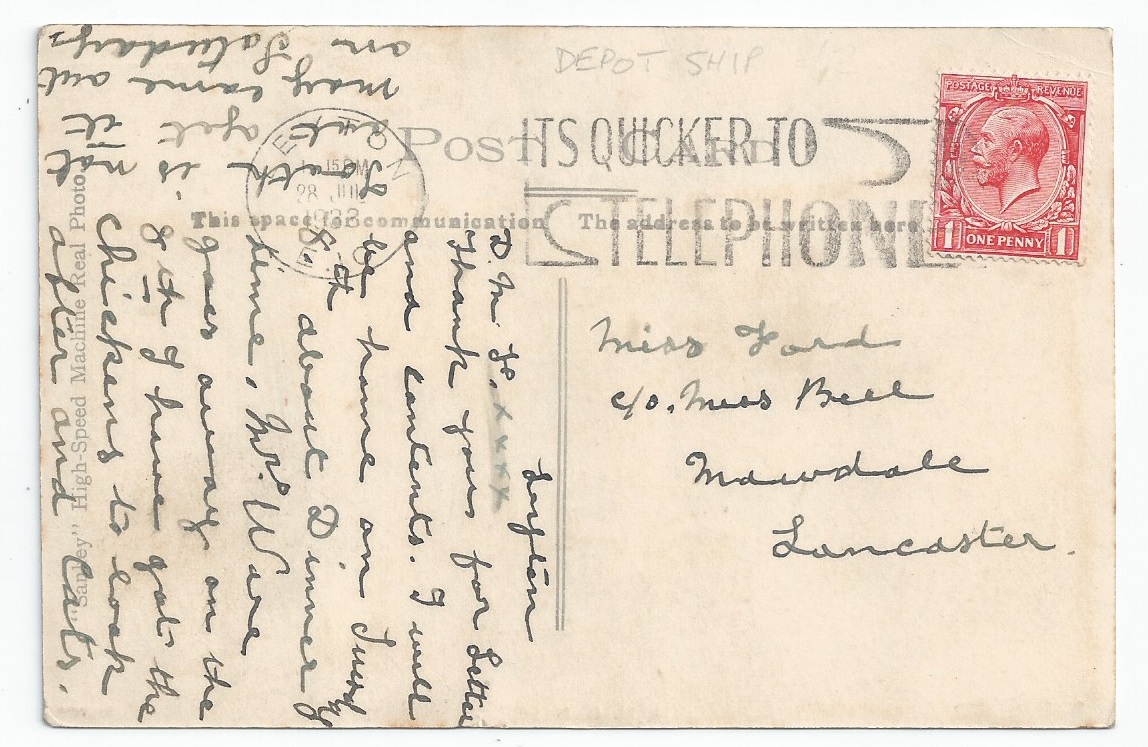 DEPOT SHIP
POSTAGE REVENUE
1 ONE PENNY 1
ITS QUICKER TO
TELEPHONE
POST CARD
28 JUL
1933
This space for communication
The address to be written here.
Miss Ford
c/o. Miss Bell
Lancaster.
Layton
D. M. F. x x x x
Thank you for Letter
and contents. I will
be home on
8th about Dinner
time. Mr. W
goes away on the
8th I have got the
chickens to look
after and Cats.
"Sankey" High-Speed Machine Real Photo.
is it not
may come out
on Saturdays